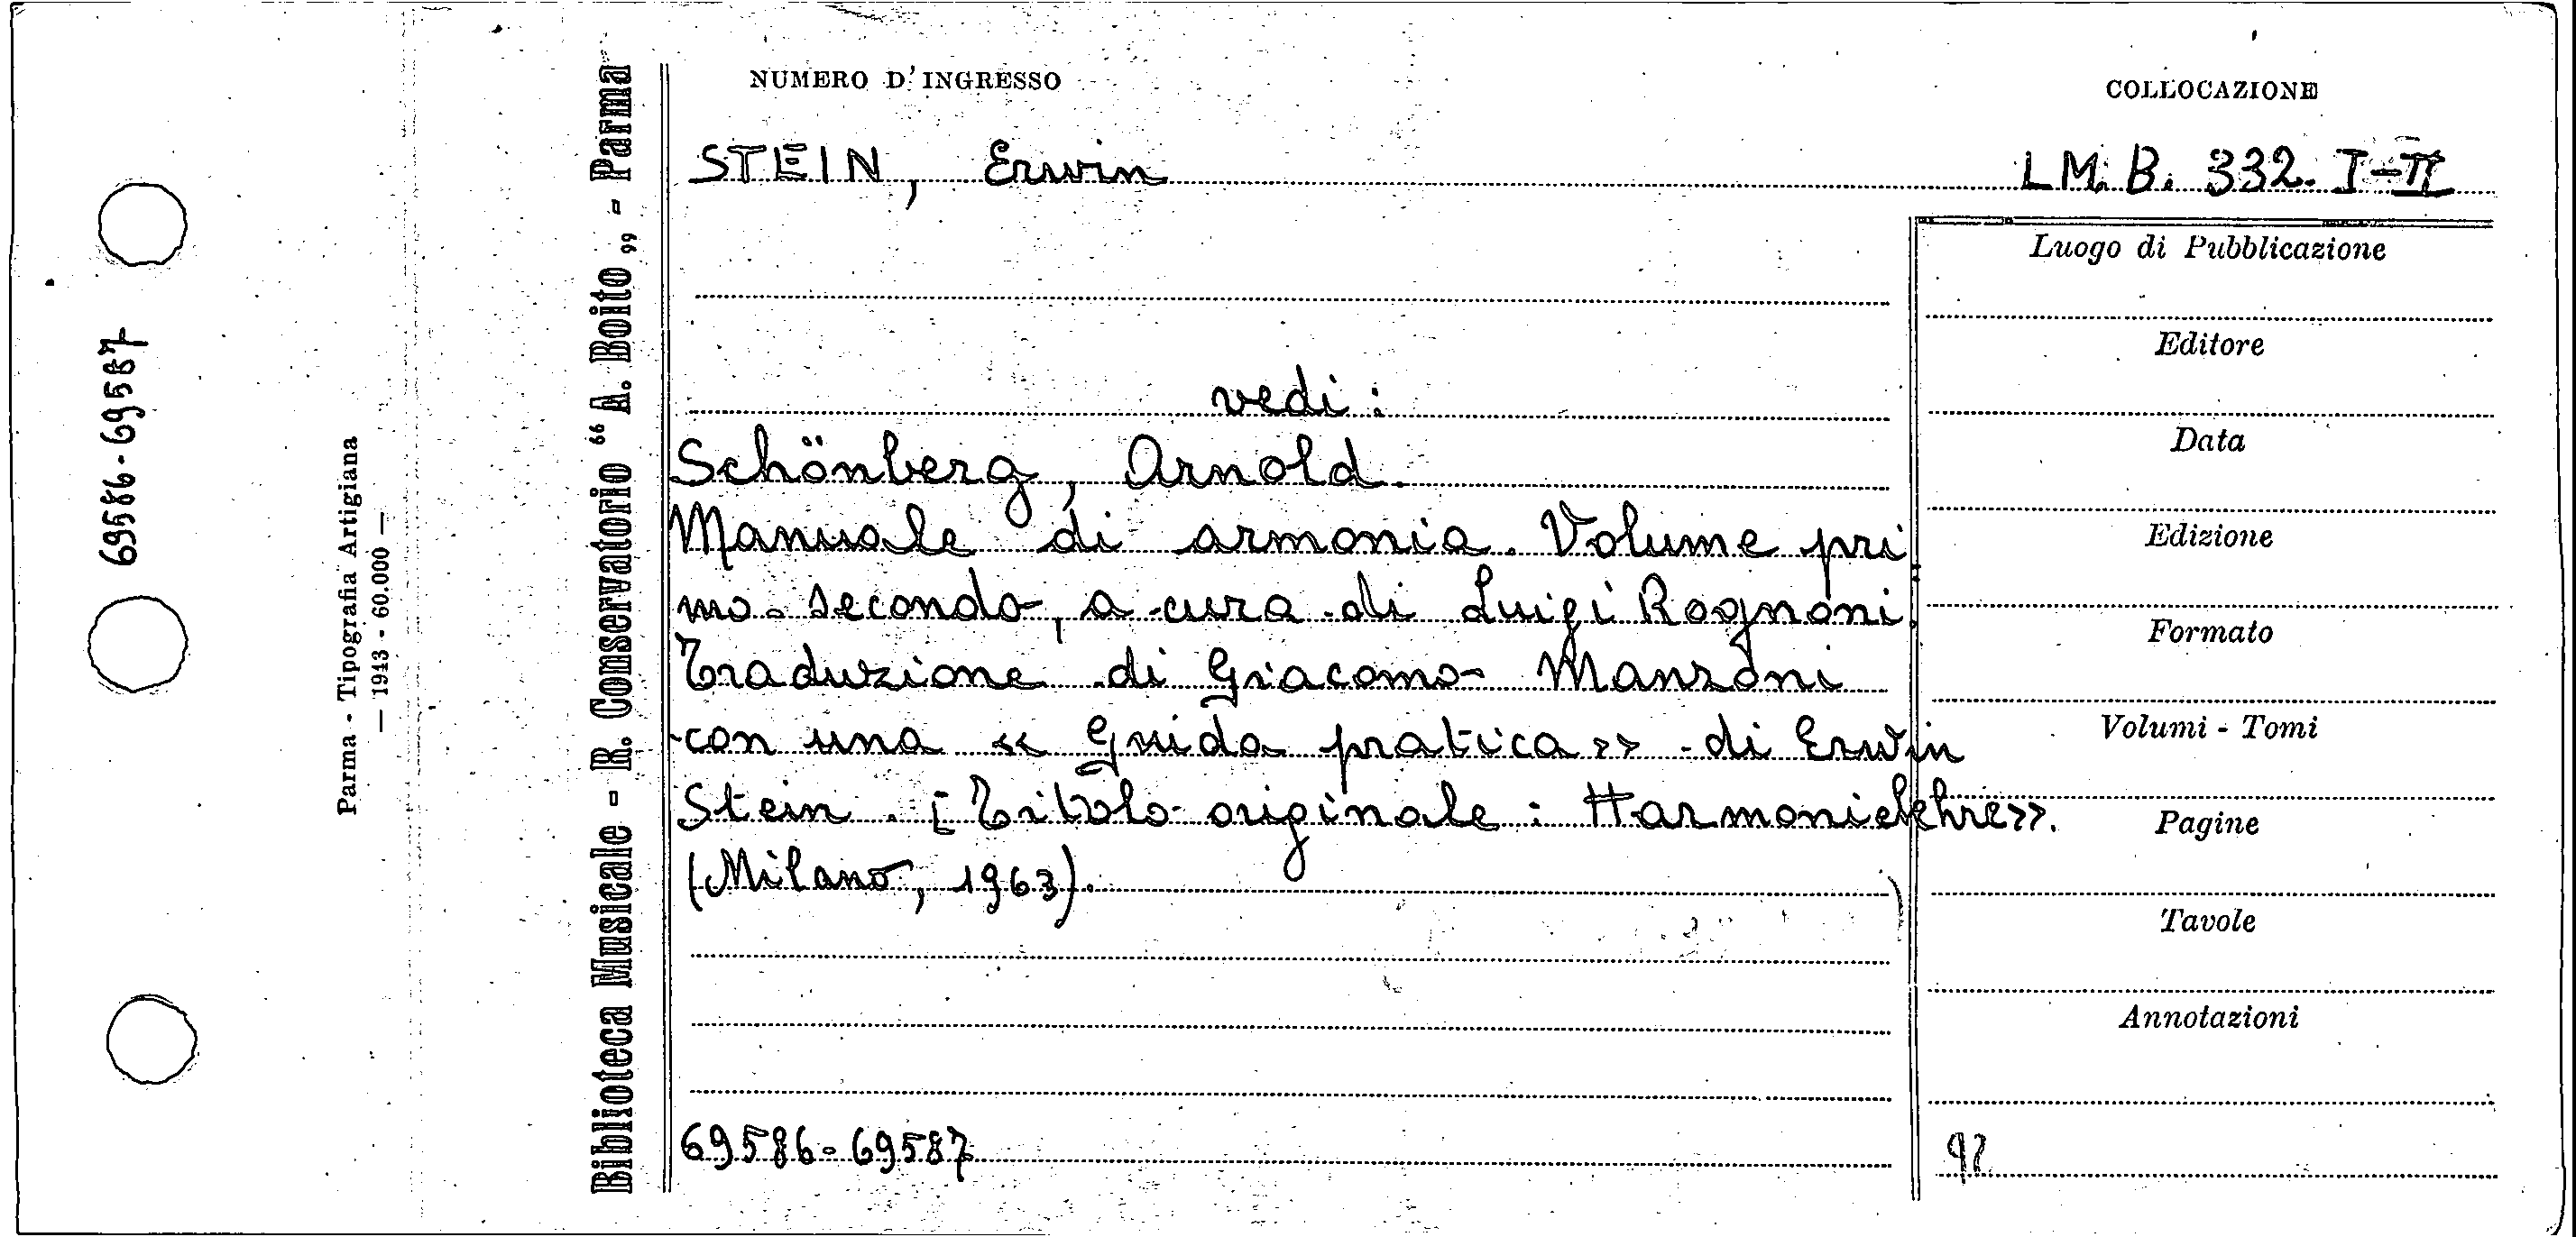 NUMERO D'INGRESSO
COLLOCAZIONE
STEIN, Erwin
LM. B. 332. I-II
vedi:
Schönberg, Arnold.
Manuale di armonia. Volume pri
mo-secondo, a cura di Luigi Rognoni.
Traduzione di Giacomo Manzoni
con una « Guida pratica » di Erwin
Stein. [Titolo originale: Harmonielehre».
(Milano, 1963).
69586-69587
Luogo di Pubblicazione
Editore
Data
Edizione
Formato
Volumi - Tomi
Pagine
Tavole
Annotazioni
Biblioteca Musicale - R. Conservatorio “A. Boito„ - Parma
Parma - Tipografia Artigiana
— 1943 - 60.000 —
69586-69587